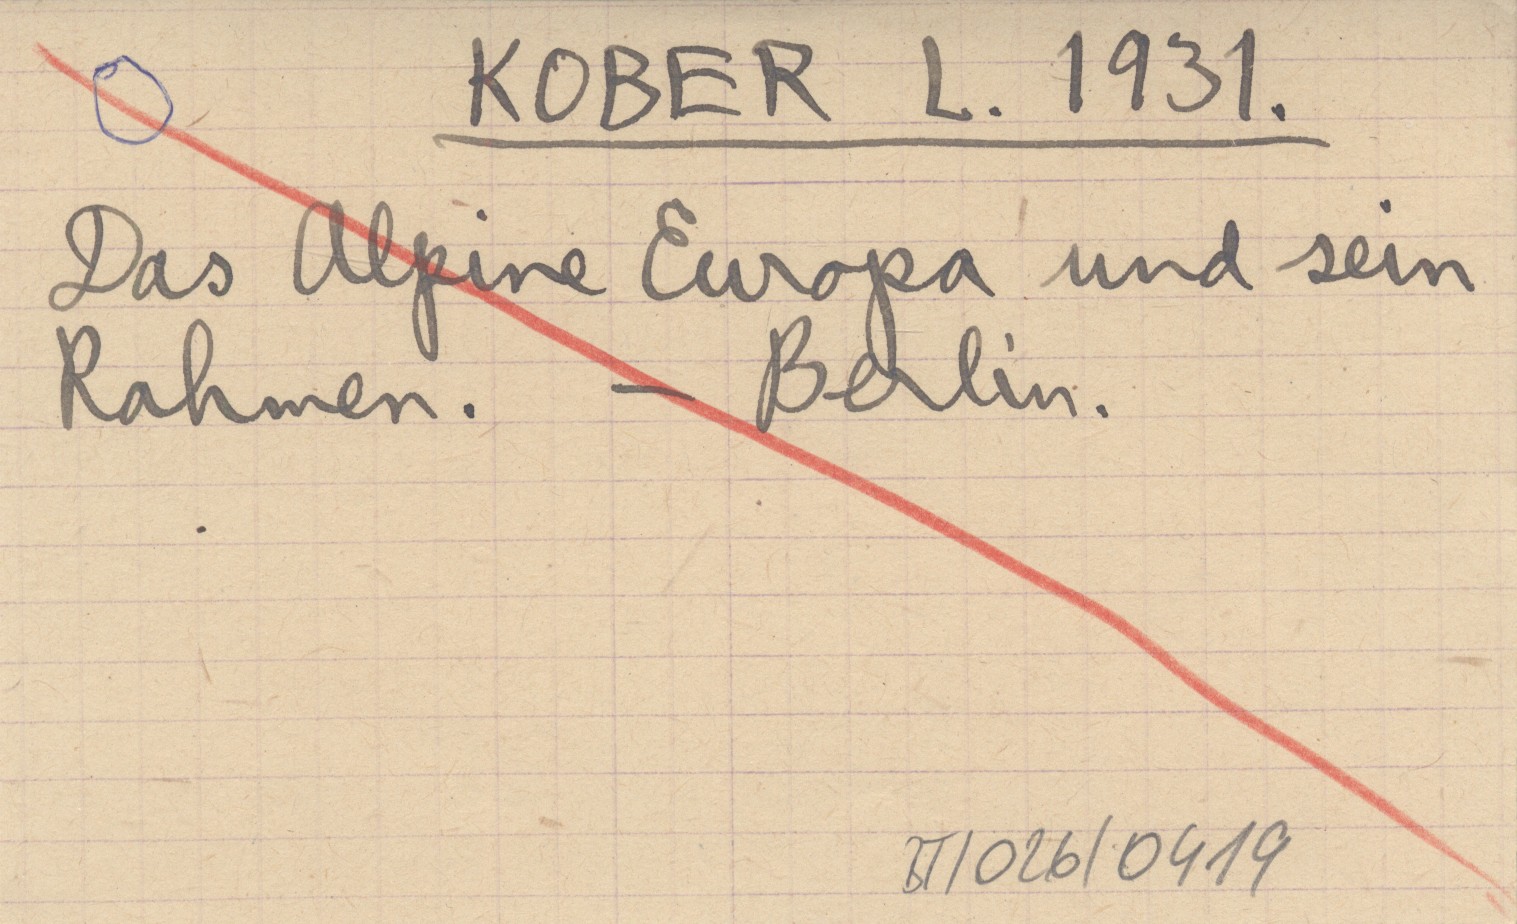 KOBER L. 1931.
Das Alpine Europa und sein
Rahmen. — Berlin.
/026/0419